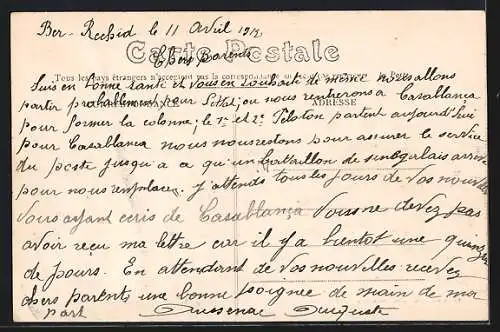 Ber-Rechid le 11 Avril 1912
Carte Postale
Chers parents
Tous les pays étrangers n'acceptent pas la correspondance
Suis en bonne santé et vous en souhait de même nous allons
partir probablement pour Settat; ou nous rentrerons a Casablanca
ADRESSE
pour former la colonne; le 1er et 2e Peloton partent aujourd'hui
pour Casablanca nous nous restons pour assurer le service
du poste jusqu'a a qu'un battaillon de senegalais arrive
pour nous remplacer. J'attends tous les jours de vos nouvelles
Vous ayant ecris de Casablanca Vous ne devez pas
avoir reçu ma lettre car il y a bientot une quinzaine
de jours. En attendant de vos nouvelles recevez
chers parents une bonne poignee de main de ma
part Auguste